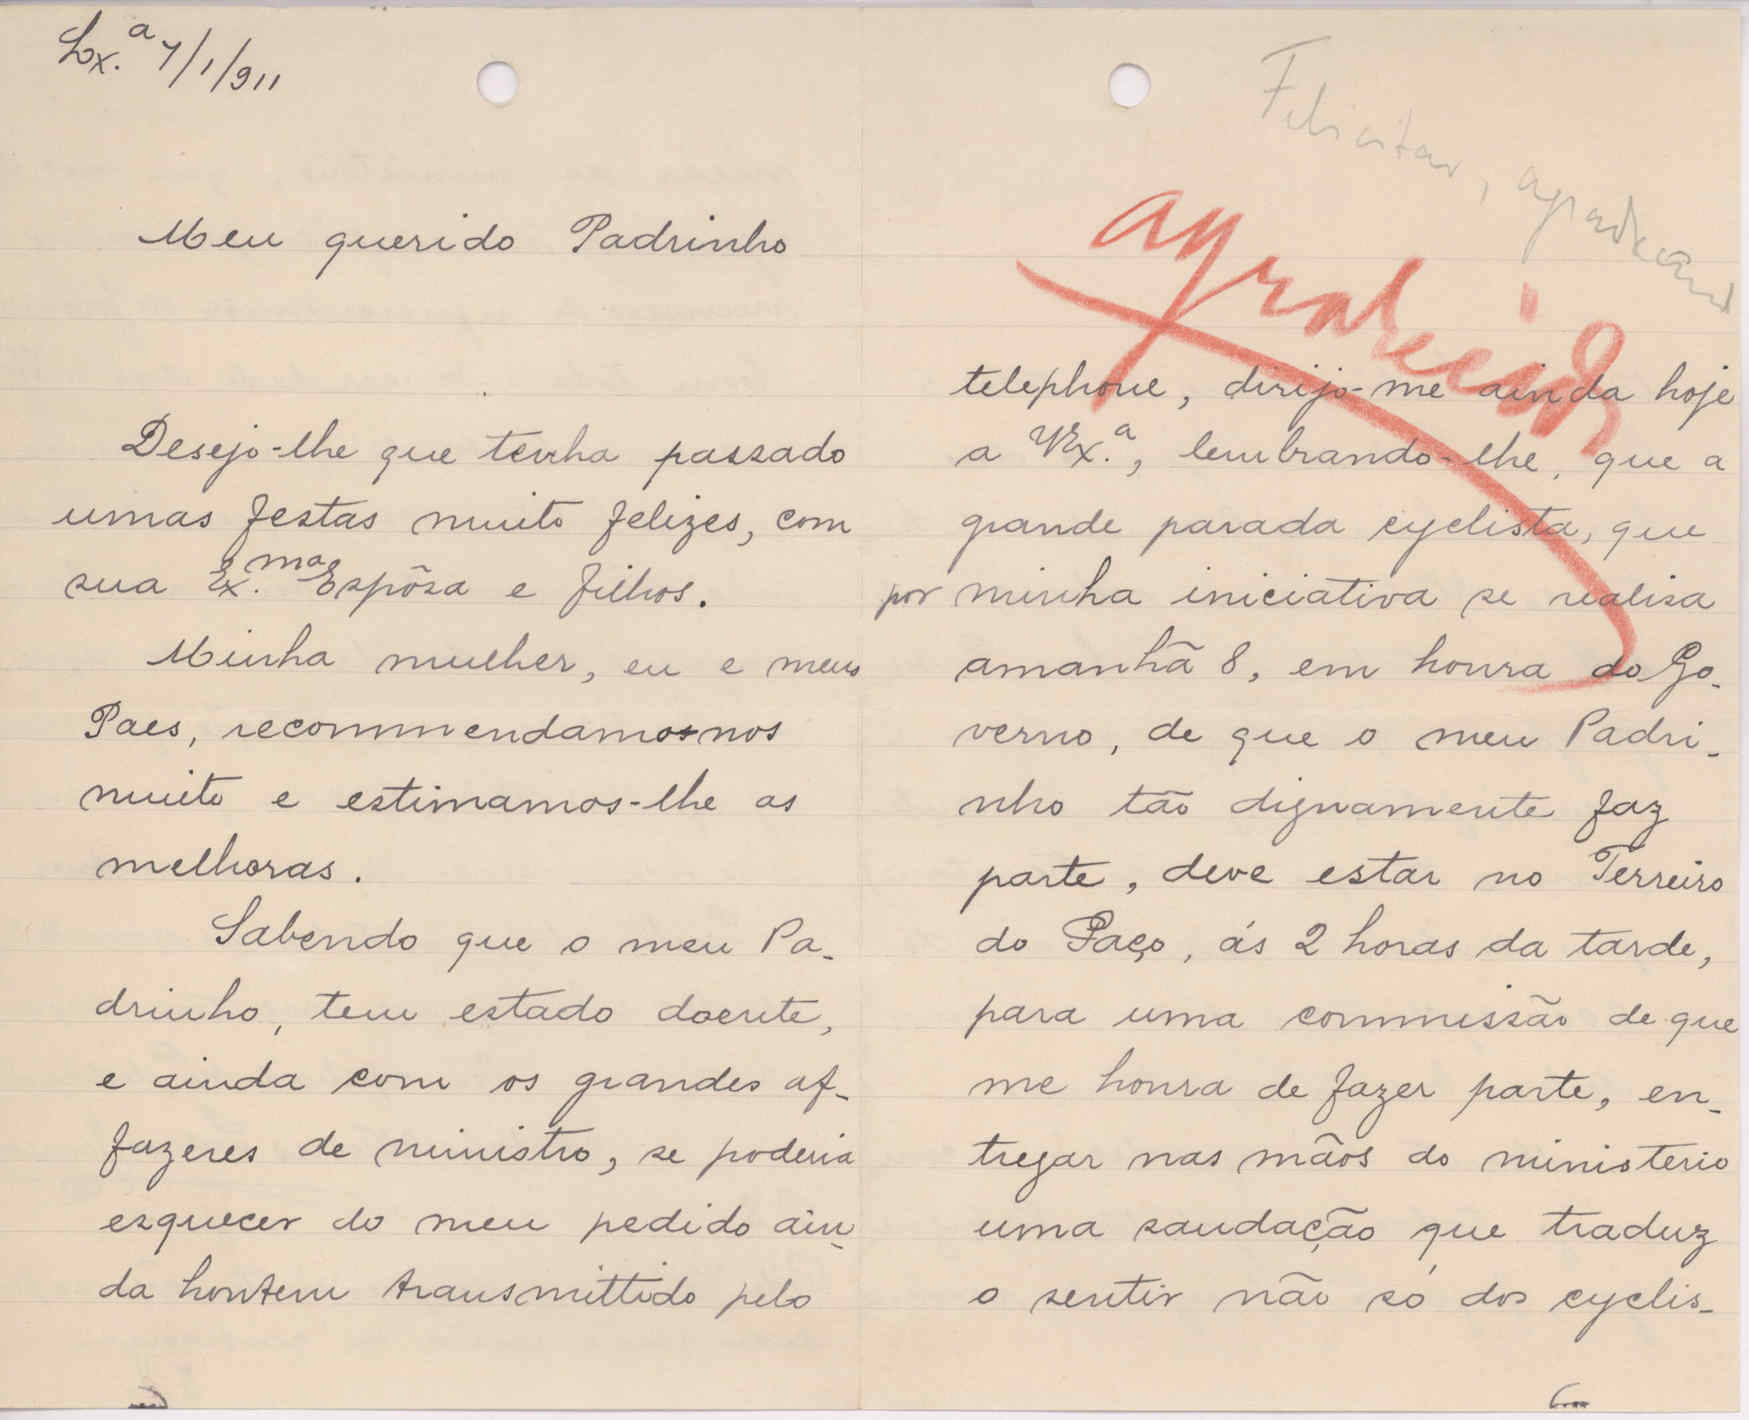 Lx.ª 7/1/911
Meu querido Padrinho
Desejo-lhe que tenha passado
umas festas muito felizes, com
sua Ex.ma Espôsa e filhos.
Minha mulher, eu e meus
Paes, recommendamos-nos
muito e estimamos-lhe as
melhoras.
Sabendo que o meu Pa-
drinho, tem estado doente,
e ainda com os grandes af-
fazeres de ministro, se poderia
esquecer do meu pedido ain-
da hontem transmittido pelo
Felicitar, agradecend
agradecida
telephone, dirijo-me ainda hoje
a VEx.ª, lembrando-lhe, que a
grande parada cyclista, que
por minha iniciativa se realisa
amanhã 8, em honra do Go-
verno, de que o meu Padri-
nho tão dignamente faz
parte, deve estar no Terreiro
do Paço, ás 2 horas da tarde,
para uma commissão de que
me honra de fazer parte, en-
tregar nas mãos do ministerio
uma saudação que traduz
o sentir não só dos cyclis-